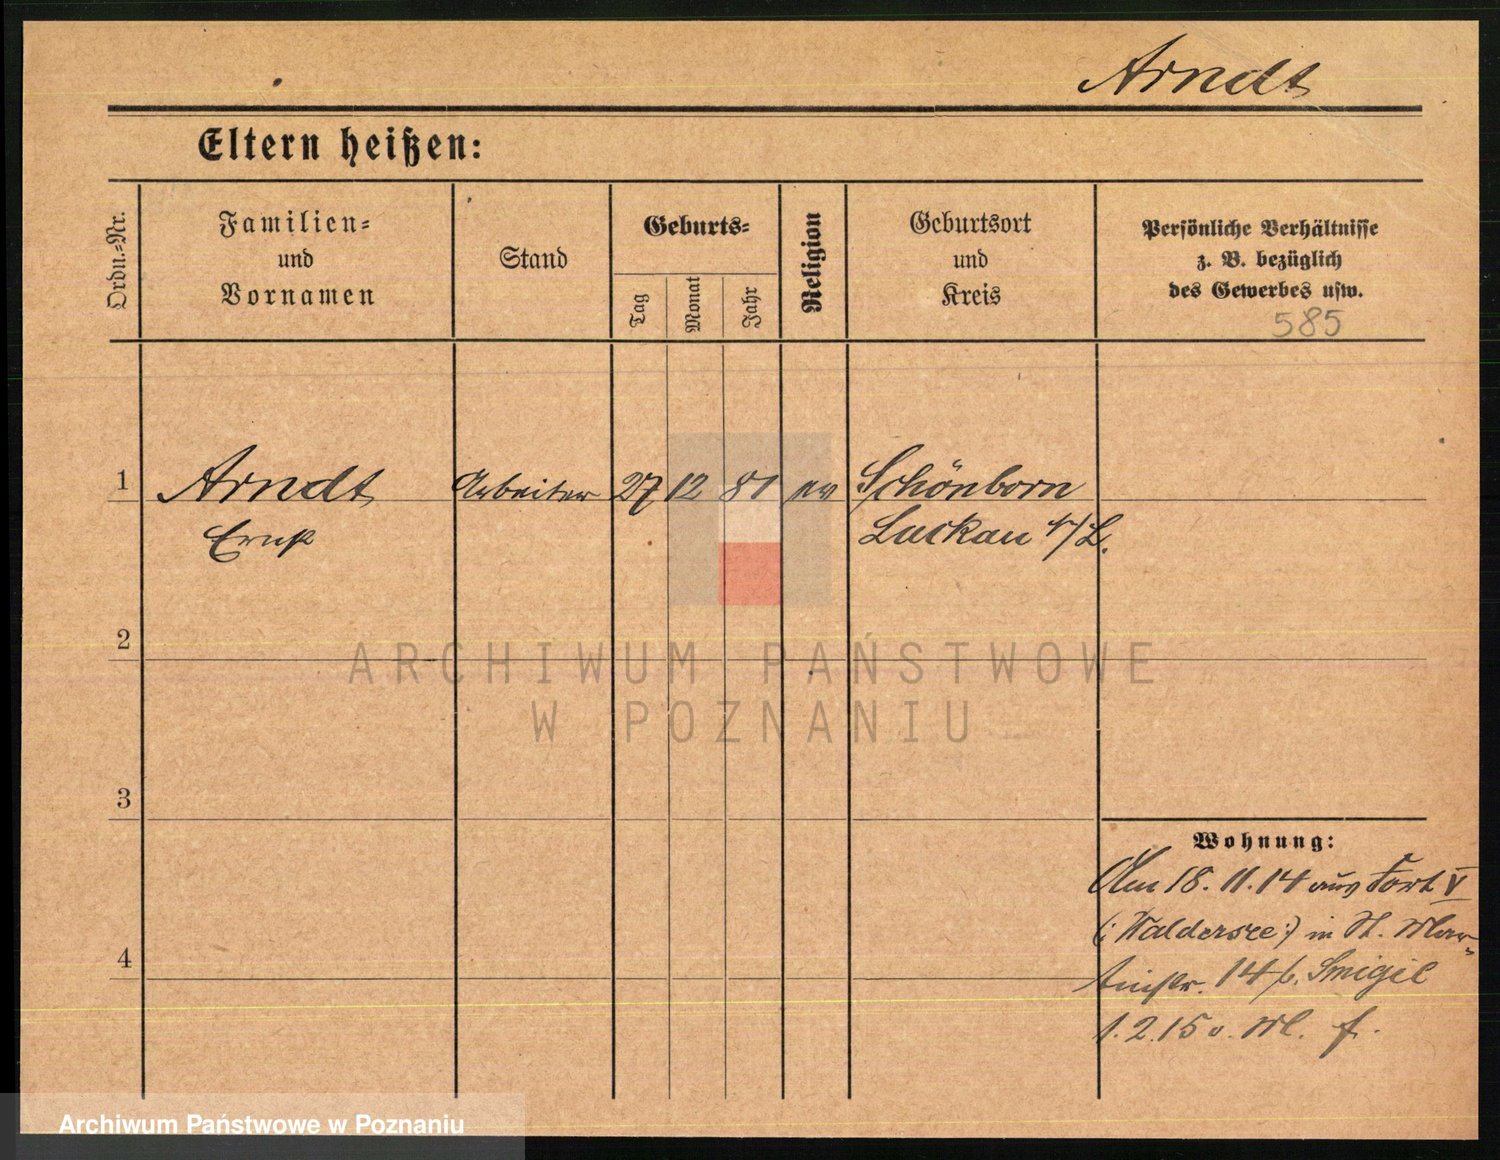 Arndt
Eltern heißen:
Ordn.-Nr.
Familien-
und
Vornamen
Stand
Geburts-
Tag
Monat
Jahr
Religion
Geburtsort
und
Kreis
Persönliche Verhältnisse
z. B. bezüglich
des Gewerbes usw.
585
1 Arndt Arbeiter 27 12 81 ev Schönborn
Ernst Luckau /L.
2
ARCHIWUM PAŃSTWOWE
W POZNANIU
3
Wohnung:
Am 18.11.14 aus Fort V
(: Waldersee :) in St. Mar-
4
tinstr. 14 b. Smigil
1.2.15 v.
Archiwum Państwowe w Poznaniu